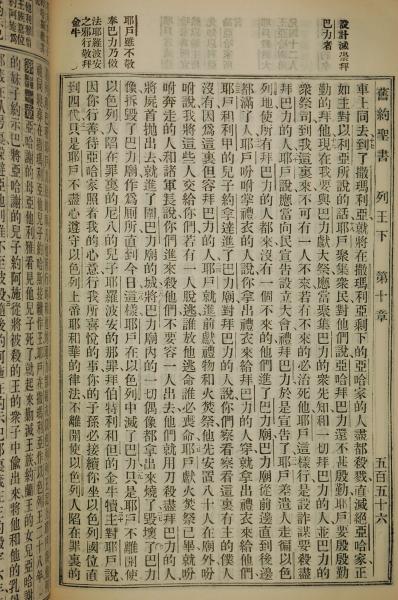 舊約聖書 列王下 第十章 五百五十六
設計滅崇拜
巴力者
耶戶雖不敬
奉巴力乃傚
法耶羅波安
之邪行敬拜
金牛
車上同去到了撒瑪利亞就將在撒瑪利亞剩下的亞哈家的人盡都殺戮直滅絕亞哈家正
如主對以利亞所說的話耶戶聚集衆民對他們說亞哈拜巴力還不甚殷勤耶戶要殷殷勤
勤的拜他現在我要與巴力獻大祭應當聚集巴力的衆先知和一切拜巴力的人並巴力的
衆祭司到我這裏來不可有一人不來若有不來的必治死他耶戶這樣行是設詐謀要殺盡
拜巴力的人耶戶說應當向民宣告設立大會禮拜巴力於是宣告了耶戶差遣人走徧以色
列地使所有拜巴力的人都來沒有一個不來的他們進了巴力廟巴力廟從前邊直到後邊
都滿了人耶戶吩咐掌禮衣的人說你拿出禮衣來給拜巴力的人穿就拿出禮衣來給他們
耶戶和利甲的兒子約拿達進了巴力廟對拜巴力的人說你們察看察看這裏有主的僕人
沒有因爲這裏但容拜巴力的人耶戶就進前獻禮物和火焚祭他先安置八十人在廟外吩
咐說我將這些人交給你們若有一人脫逃誰放他逃命誰必喪命耶戶獻火焚祭已畢就吩
咐奔走的人和諸軍長說你們進來殺他們不要容一人出去他們就用刀殺盡拜巴力的人
將屍首拋出去就進了關巴力廟的城將巴力廟內的一切偶像都拿出來燒了毀壞了巴力
像拆毀了巴力廟作爲厠所直到今日這樣耶戶在以色列中滅了巴力只是耶戶不離開使
以色列人陷在罪裏的尼八的兒子耶羅波安的那罪拜伯特利和但的金牛犢主對耶戶說
因你行善待亞哈家照着我的心意行我所喜悅的事你的子孫必接續你坐以色列國位直
到四代只是耶戶不盡心遵守以色列上帝耶和華的律法不離開使以色列人陷在罪裏的